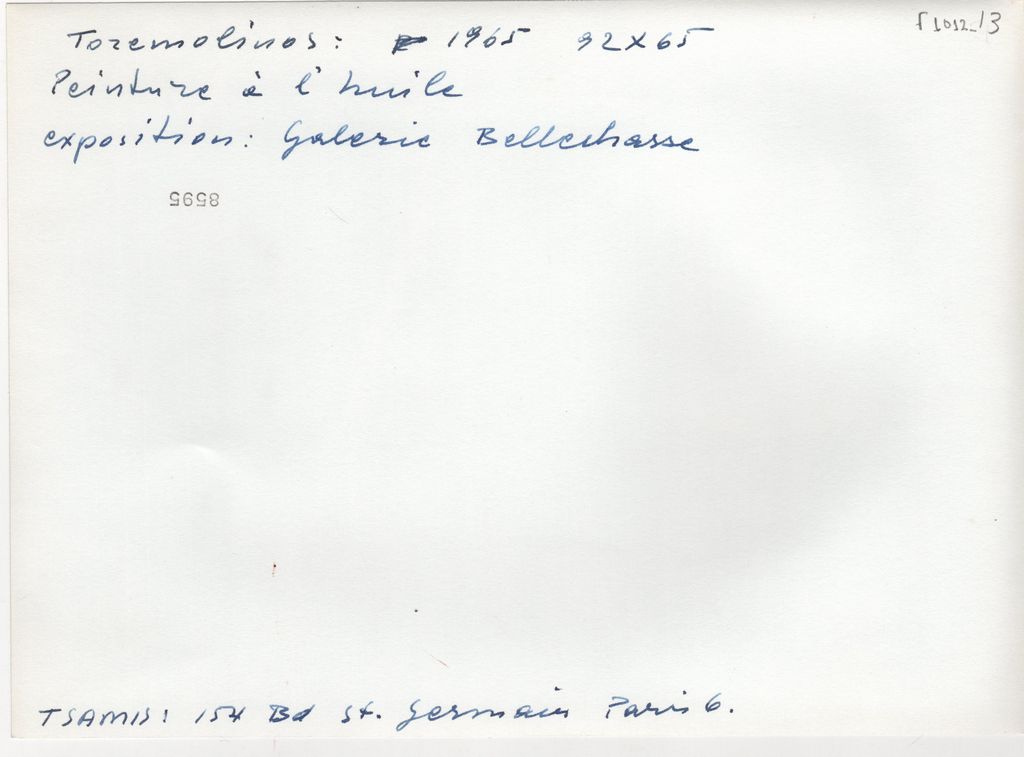 Γ1012_13
Toremolinos: 1965 92X65
Peinture à l'huile
exposition: Galerie Bellechasse
8595
TSAMIS: 154 Bd St. Germain Paris 6.